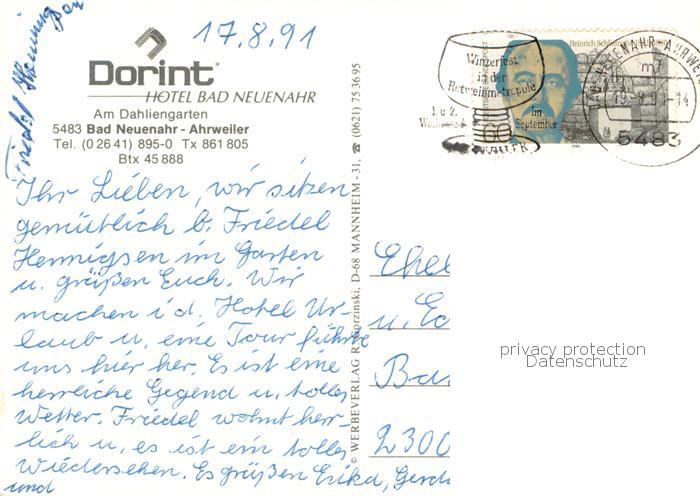 17.8.91
Dorint
HOTEL BAD NEUENAHR
Am Dahliengarten
5483 Bad Neuenahr - Ahrweiler
Tel. (0 26 41) 895-0 Tx 861 805
Btx 45 888
Ihr Lieben, wir sitzen
gemütlich b. Friedel
Hennigsen im Garten
u. grüßen Euch. Wir
machen i d. Hotel Ur-
laub u. eine Tour führte
uns hier her. Es ist eine
herrliche Gegend u. tolles
Wetter. Friedel wohnt herr-
lich u. es ist ein tolles
Wiedersehen. Es grüßen Erika, Gerda
und
Friedel
© WERBEVERLAG R. MANNHEIM - 31, ☎ (0621) 75 36 95
Winzerfest
in der
Rotweinmetropole
1. u. 2.
im
September
Heinrich
60
1990
5483
Ehel
u.
2300
privacy protection
Datenschutz